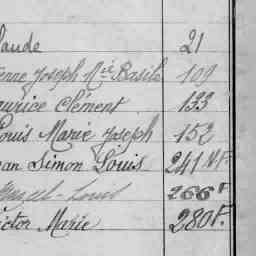 laude 21
enne Joseph Mie Basile 109
aurice Clément 133
Louis Marie Joseph 152
ean Simon Louis 241 N.F.
Louis 266 F.
ictor Marie 280 F.